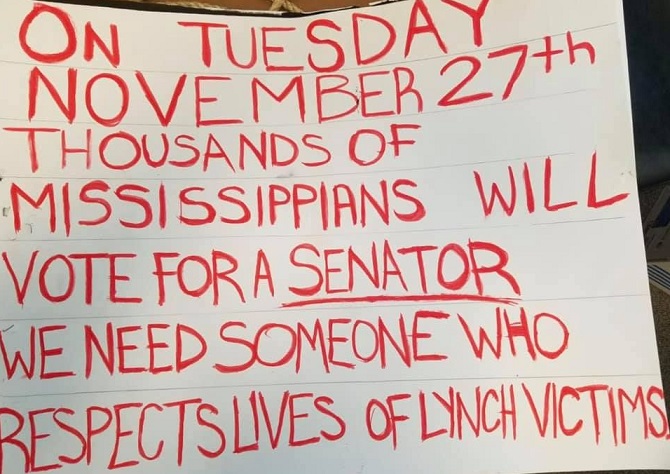 ON TUESDAY
NOVEMBER 27th
THOUSANDS OF
MISSISSIPPIANS WILL
VOTE FOR A SENATOR
WE NEED SOMEONE WHO
RESPECTS LIVES OF LYNCH VICTIMS